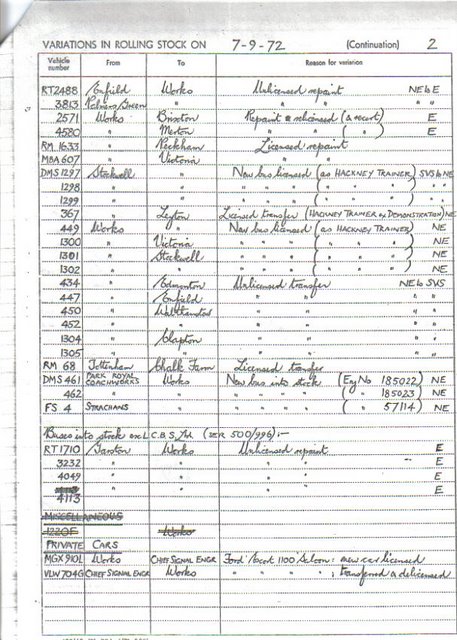 VARIATIONS IN ROLLING STOCK ON 7-9-72 (Continuation) 2
Vehicle number From To Reason for variation
RT2488 Enfield Works Unlicensed repaint NE to E
3813 Palmers Green " " " "
2571 Works Brixton Repaint & relicensed (a recert) E
4580 " Merton " " " ( " ) E
RM 1633 " Peckham Licensed repaint
MBA 607 " Victoria " "
DMS1297 Stockwell " New bus licensed (as HACKNEY TRAINER) SVS to NE
1298 " " " " " ( " " " ) "
1299 " " " " " ( " " " ) "
367 " Leyton Licensed transfer (HACKNEY TRAINER on DEMONSTRATION) NE
449 Works " New bus licensed (as HACKNEY TRAINER) NE
1300 " Victoria " " " ( " " " ) NE
1301 " Stockwell " " " ( " " " ) NE
1302 " " " " " ( " " " ) NE
434 " Edmonton Unlicensed transfer NE to SVS
447 " Enfield " " " "
450 " Walthamstow " " " "
452 " " " " " "
1304 " Clapton " " " "
1305 " " " " " "
RM 68 Tottenham Chalk Farm Licensed transfer
DMS 461 PARK ROYAL COACHWORKS Works New bus into stock (Eng No 185022) NE
462 " " " " " " ( " 185023) NE
FS 4 STRACHANS " " " " " ( " 57114) NE
Buses into stock ex L.C.B.S. Ltd (SER 500/996):-
RT1710 Garston Works Unlicensed repaint E
3232 " " " " E
4049 " " " " E
4113 " " " " E
MISCELLANEOUS
1220F Works
PRIVATE CARS
MGX 910L Works CHIEF SIGNAL ENGR Ford Escort 1100 Saloon: new car licensed
VLW 704G CHIEF SIGNAL ENGR Works " " " " ; transferred & delicensed